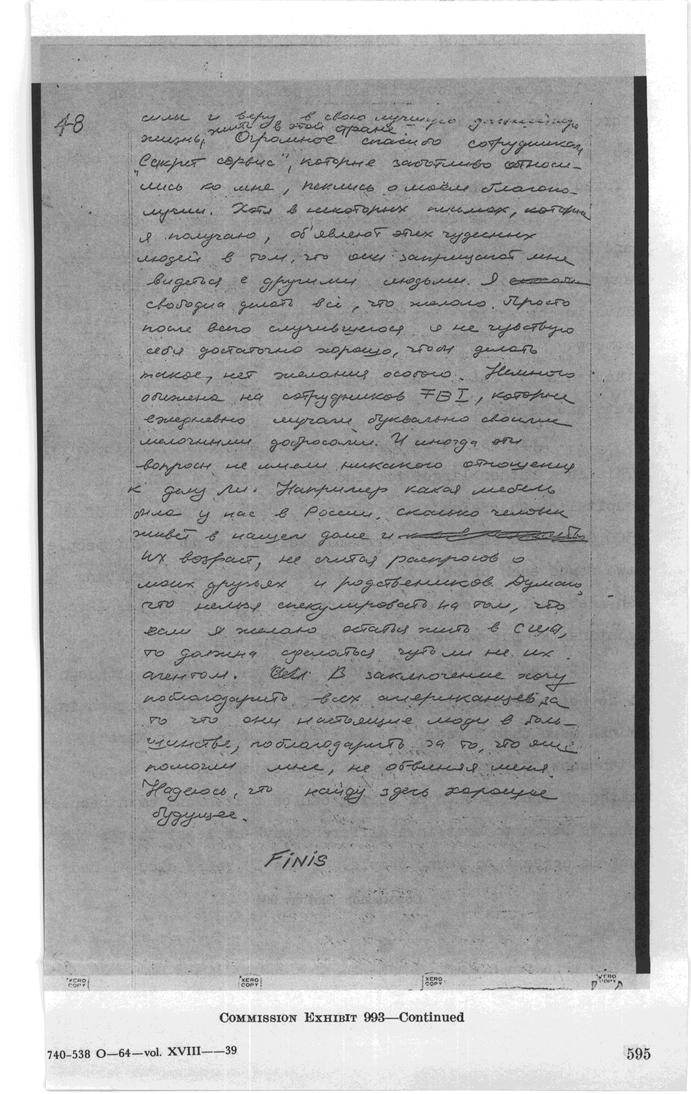 48
силы и веру в свою лучшую дальнейшую
жить в этой стране
жизнь, Огромное спасибо сотрудникам
"Сикрет сервис", которые заботливо относи-
лись ко мне, пеклись о моём благопо-
лучии. Хотя в некоторых письмах, которые
я получаю, об'явлеют этих чудесных
людей в том, что они запрещают мне
видеться с другими людьми. Я
свободна делать всё, что желаю. Просто
после всего случившегося я не чувствую
себя достаточно хорошо, чтоб делать
такое, нет желания особого. Немного
обижена на сотрудников FBI, которые
ежедневно мучали буквально своими
мелочными допросами. И иногда эти
вопросы не имели никакого отношения
к делу Ли. Например какая мебель
была у нас в России, сколько человек
живёт в нашем доме и
их возраст, не считая распросов о
моих друзьях и родственников. Думаю,
что нельзя спекулировать на том, что
если я желаю остаться жить в США,
то должна сделаться чуть ли не их
агентом. В заключение хочу
поблагодарить всех американцев за
то что они настоящие люди в боль-
шинстве, поблагодарить за то, что они
помогли мне, не обвиняя меня.
Надеюсь, что найду здесь хорошее
будущее.
FINIS
XERO COPY XERO COPY XERO COPY XERO COPY
COMMISSION EXHIBIT 993—Continued
740-538 O—64—vol. XVIII——39 595